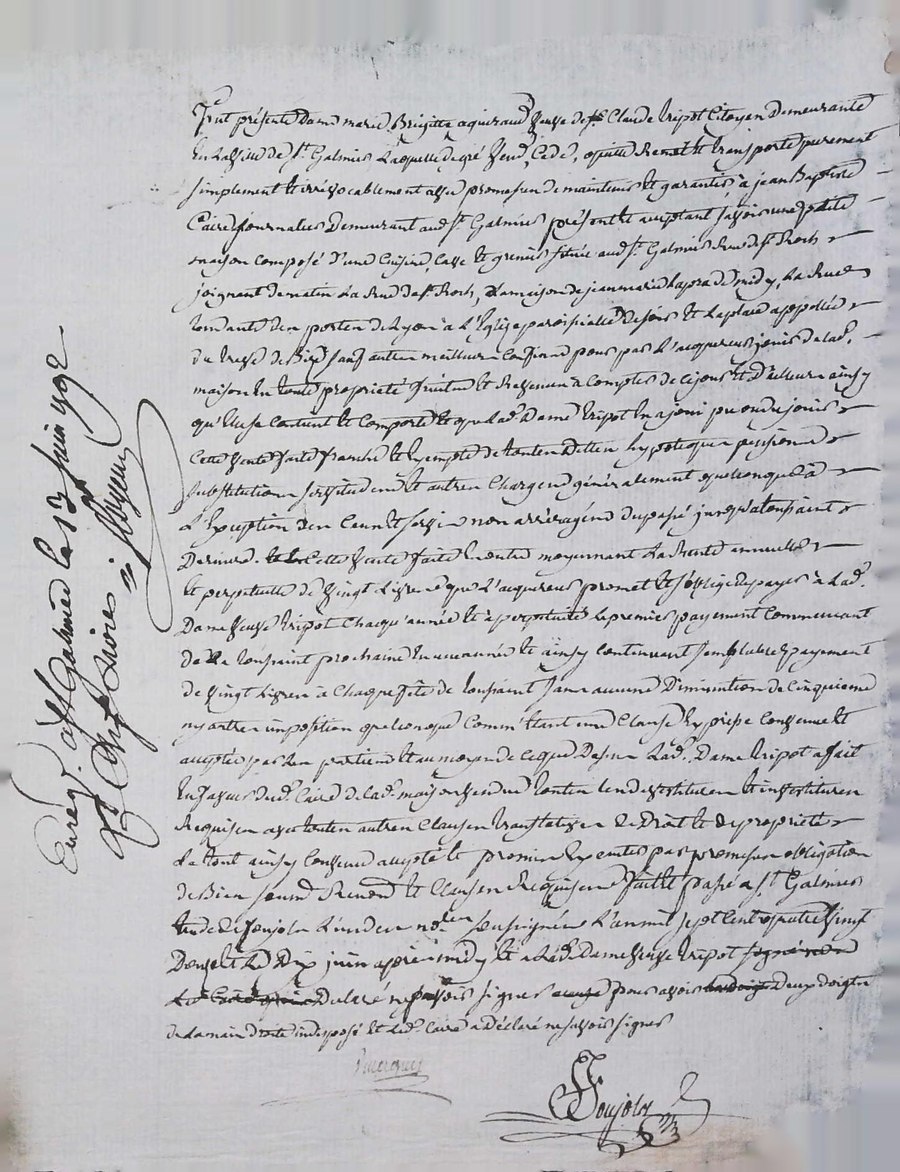 Fut présente Dame marie Brigitte aguiraud Veuve de sr. Claude Tripot Citoyen Demeurante
En La Ville de st. Galmier Laquelle de gré Vend, Cede, quitte Remet et transporte purement
simplement et irrévocablement avec promesse de maintenir et garantir à jean Baptiste
Caire journalier Demeurant aud. st. Galmier présent et acceptant savoir une petite
maison composé d'une Cuisine, Cave et grenier située aud. st. Galmier Rue de st. Roch
joignant de matin La Rue de st. Roch, La maison de jean marie Laprade midy, La Rue
tendante des porten de Lyon à L'Eglise paroissialle de soir et La place appellée
du de Bize sauf autres meilleurs Confins pour par L'acquereur jouir de lad.
maison En toute propriété fruits et Revenus à Compter de ce jour et D'ailleurs ainsy
qu'Elle se Contient et Comporte et que Lad. Dame Tripot En a joui pu ou du jouir
Cette Vente faite franche et Exempte de touten Detten hypotequen pensionn
substitution servitudenn et autren Chargenn généralement quelconque à
L'Exception den Cenn et servin non arréragenn du passé jusqu'à toussaint
Derniere. Cette Vente faite En outre moyennant La Rente annuelle
et perpetuelle de Vingt Livrenn que L'acquereur promet et s'oblige de payer à Lad.
Dame Veuve Tripot Chaque année et à perpétuité le premier payement Commencant
de La toussaint prochaine En une année et ainsy Continuant semblable payement
de Vingt Livren à Chaque fête de toussaint sans aucune Diminution de Cinquieme
ny autre imposition quelconque Comm'Etant une Clause Expresse Convenue et
acceptée par Les partienn et au moyen de Ceque Dessus Lad. Dame Tripot a fait
En faveur dud. Caire de lad. maison Vendue touten len devestituren et investituren
Requisen avec touten autren Clausen translativen de Droit et de propriété
Le tout ainsy Convenu accepté et promis Exécuter par promesse obligation
de Bien soumis Renonc. et Clausen Requisenn fait et passé à st. Galmier
Etude de Soujolr L'un den no.renn soussignén L'an mil sept Cent quatre Vingt
Douze Et Le Dix juin aprèn midy Et a Lad. Dame Veuve Tripot
Declaré ne pouvoir signer pour avoir Deux doigts
de La main Droite indisposé Et Led. Caire a déclaré ne savoir signer
Soujolr
Enreg. à st. Galmier le 13 juin 1792